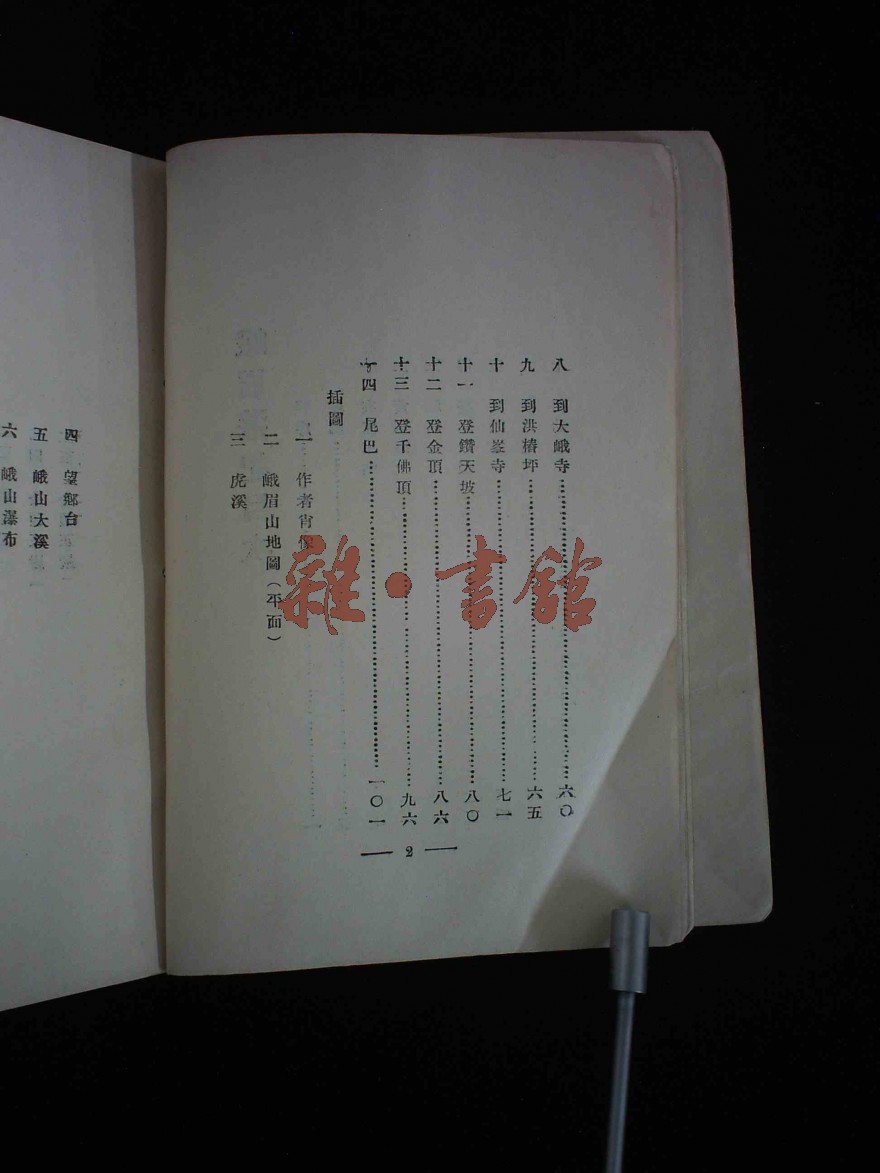 八　到大峨寺……六〇
九　到洪椿坪……六五
十　到仙峯寺……七一
十一　登鑽天坡……八〇
十二　登金頂……八六
十三　登千佛頂……九六
十四　尾巴……一〇一
插圖
一　作者肖像
二　峨眉山地圖（平面）
三　虎溪
— 2 —
四　望鄉台
五　峨山大溪
六　峨山瀑布
雜·書館